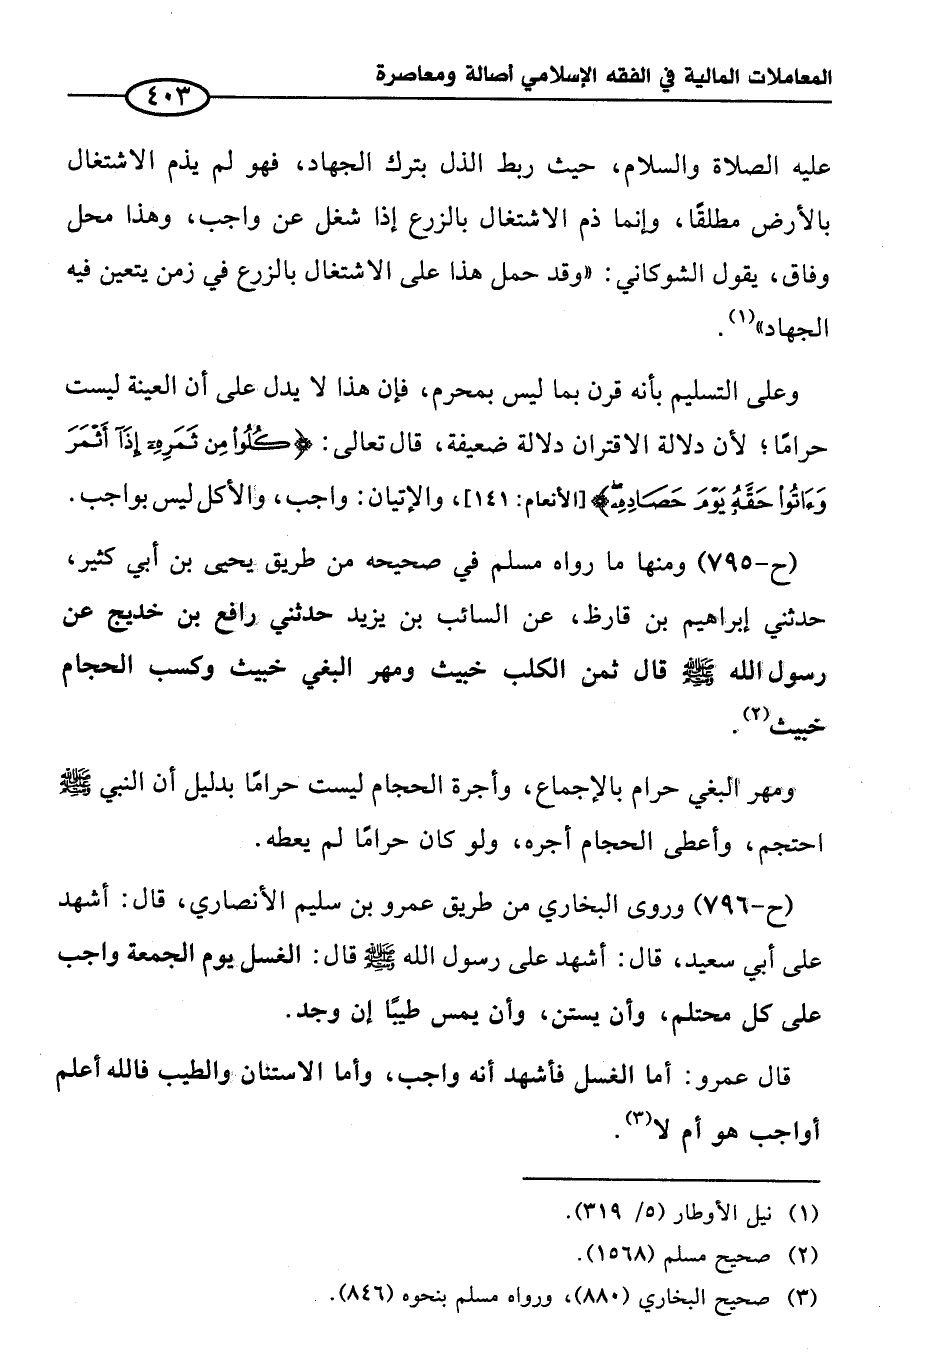 المعاملات المالية في الفقه الإسلامي أصالة ومعاصرة
٤٠٣
عليه الصلاة والسلام، حيث ربط الذل بترك الجهاد، فهو لم يذم الاشتغال
بالأرض مطلقًا، وإنما ذم الاشتغال بالزرع إذا شغل عن واجب، وهذا محل
وفاق، يقول الشوكاني: «وقد حمل هذا على الاشتغال بالزرع في زمن يتعين فيه
الجهاد»(١).
وعلى التسليم بأنه قرن بما ليس بمحرم، فإن هذا لا يدل على أن العينة ليست
حرامًا؛ لأن دلالة الاقتران دلالة ضعيفة، قال تعالى: ﴿كُلُوا۟ مِن ثَمَرِهِۦٓ إِذَآ أَثْمَرَ
وَءَاتُوا۟ حَقَّهُۥ يَوْمَ حَصَادِهِۦ﴾ [الأنعام: ١٤١]، والإتيان: واجب، والأكل ليس بواجب.
(ح-٧٩٥) ومنها ما رواه مسلم في صحيحه من طريق يحيى بن أبي كثير،
حدثني إبراهيم بن قارظ، عن السائب بن يزيد حدثني رافع بن خديج عن
رسول الله ﷺ قال ثمن الكلب خبيث ومهر البغي خبيث وكسب الحجام
خبيث(٢).
ومهر البغي حرام بالإجماع، وأجرة الحجام ليست حرامًا بدليل أن النبي ﷺ
احتجم، وأعطى الحجام أجره، ولو كان حرامًا لم يعطه.
(ح-٧٩٦) وروى البخاري من طريق عمرو بن سليم الأنصاري، قال: أشهد
على أبي سعيد، قال: أشهد على رسول الله ﷺ قال: الغسل يوم الجمعة واجب
على كل محتلم، وأن يستن، وأن يمس طيبًا إن وجد.
قال عمرو: أما الغسل فأشهد أنه واجب، وأما الاستنان والطيب فالله أعلم
أواجب هو أم لا(٣).
(١) نيل الأوطار (٥/ ٣١٩).
(٢) صحيح مسلم (١٥٦٨).
(٣) صحيح البخاري (٨٨٠)، ورواه مسلم بنحوه (٨٤٦).